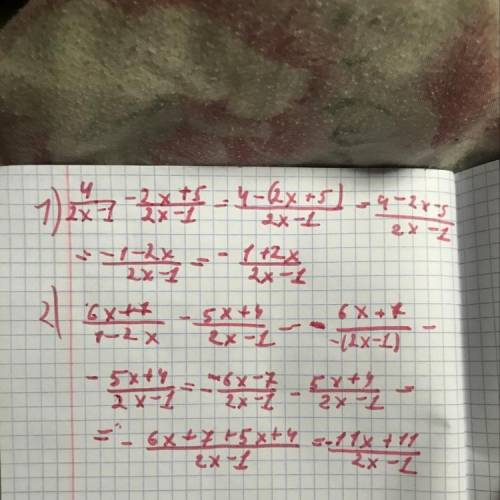 1) 4/(2x-1) - (2x+5)/(2x-1) = (4-(2x+5))/(2x-1) = (4-2x-5)/(2x-1)
= (-1-2x)/(2x-1) = - (1+2x)/(2x-1)
2) (6x+7)/(1-2x) - (5x+4)/(2x-1) - - (6x+7)/(-(2x-1)) -
- (5x+4)/(2x-1) = - (-6x-7)/(2x-1) - (5x+4)/(2x-1) =
= - (6x+7+5x+4)/(2x-1) = - (11x+11)/(2x-1)